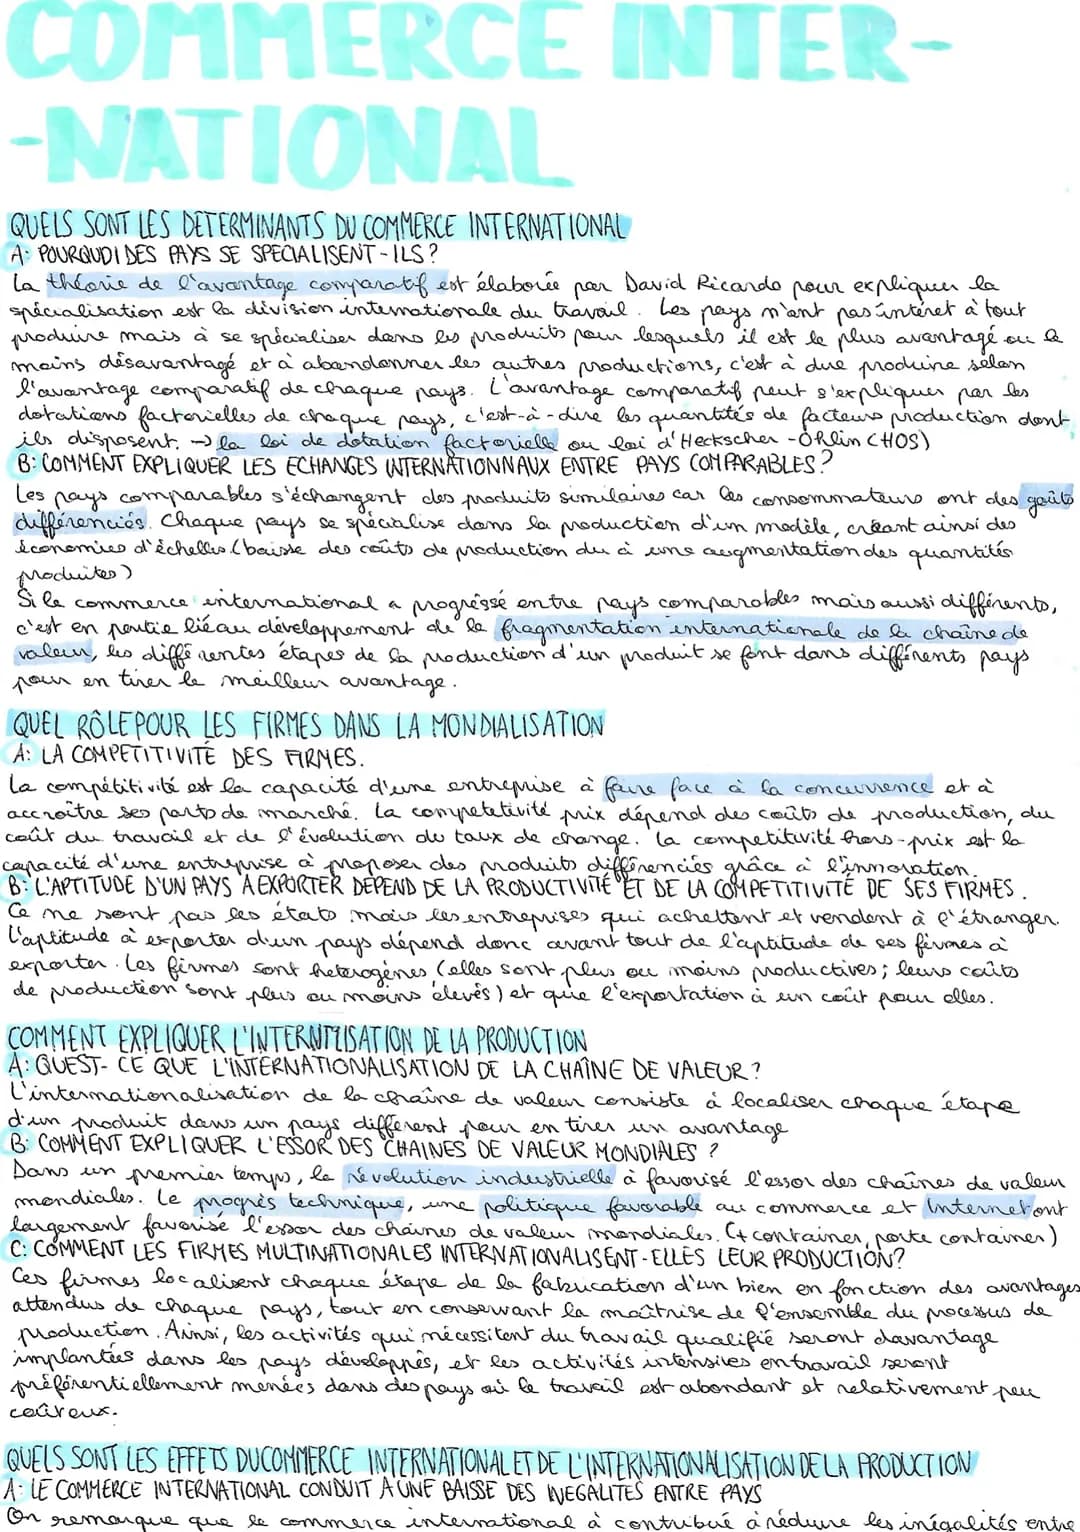 COMMERCE INTER-
-NATIONAL
QUELS SONT LES DETERMINANTS DU COMMERCE INTERNATIONAL
A: POURQUOI DES PAYS SE SPECIALISENT-ILS?
La théorie de l'avantage comparatif est élaborée par David Ricardo pour expliquer la
spécialisation est la division internationale du travail. Les pays n'ont pas intéret à tout
produire mais à se spécialiser dans les produits pour lesquels il est le plus avantagé ou le
moins désavantagé et à abandonner les autres productions, c'est à dire produire selon
l'avantage comparatif de chaque pays. L'avantage comparatif peut s'expliquer par les
dotations factorielles de chaque pays, c'est-à-dire les quantités de facteurs production dont
ils disposent. → la loi de dotation factorielle ou loi d'Heckscher-Ohlin (HOS)
B: COMMENT EXPLIQUER LES ECHANGES INTERNATIONNAUX ENTRE PAYS COMPARABLES?
Les pays comparables s'échangent des produits similaires car les consommateurs ont des goûts
différenciés. Chaque pays se spécialise dans la production d'un modèle, créant ainsi des
économies d'échelles (baisse des coûts de production du à une augmentation des quantités
produites)
Si le commerce international a progréssé entre pays comparables mais aussi différents,
c'est en partie lié au développement de la fragmentation internationale de la chaîne de
valeur, les différentes étapes de la production d'un produit se font dans différents pays
pour en tirer le meilleur avantage.
QUEL RÔLE POUR LES FIRMES DANS LA MONDIALISATION
A: LA COMPETITIVITÉ DES FIRMES.
La compétitivité est la capacité d'une entreprise à faire face à la concurrence et à
accroître ses parts de marché. La competetivité prix dépend des coûts de production, du
coût du travail et de l'évolution du taux de change. La competitivité hors-prix est la
capacité d'une entreprise à proposer des produits différenciés grâce à l'innovation.
B: L'APTITUDE D'UN PAYS A EXPORTER DEPEND DE LA PRODUCTIVITÉ ET DE LA COMPETITIVITÉ DE SES FIRMES.
Ce ne sont pas les états mais les entreprises qui achettent et vendent à l'étranger.
L'aptitude à exporter d'un pays dépend donc avant tout de l'aptitude de ses firmes à
exporter. Les firmes sont heterogènes (elles sont plus ou moins productives; leurs coûts
de production sont plus ou moins élevés) et que l'exportation à un coût pour elles.
COMMENT EXPLIQUER L' DE LA PRODUCTION
A: QUEST-CE QUE L'INTERNATIONALISATION DE LA CHAÎNE DE VALEUR?
L'internationalisation de la chaîne de valeur consiste à localiser chaque étape
d'un produit dans un pays différent pour en tirer un avantage
B: COMMENT EXPLIQUER L'ESSOR DES CHAINES DE VALEUR MONDIALES?
Dans un premier temps, la révolution industrielle à favorisé l'essor des chaînes de valeur
mondiales. Le progrès technique, une politique favorable au commerce et Internet ont
largement favorisé l'essor des chaines de valeur mondiales. (+ container, porte container)
C: COMMENT LES FIRMES MULTINATIONALES INTERNATIONALISENT-ELLES LEUR PRODUCTION?
Ces firmes localisent chaque étape de la fabrication d'un bien en fonction des avantages
attendus de chaque pays, tout en conservant la maîtrise de l'ensemble du processus de
production. Ainsi, les activités qui nécessitent du travail qualifié seront davantage
implantées dans les pays développés, et les activités intensives en travail seront
préférentiellement menées dans des pays où le travail est abondant et relativement peu
coûteux.
QUELS SONT LES EFFETS DU COMMERCE INTERNATIONAL ET DE L'INTERNATIONALISATION DE LA PRODUCTION
A: LE COMMERCE INTERNATIONAL CONDUIT A UNE BAISSE DES INEGALITES ENTRE PAYS
On remarque que le commerce international à contribué à réduire les inégalités entre